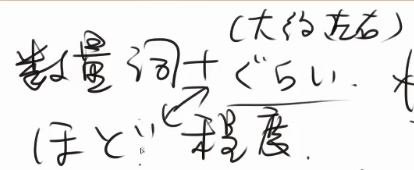 (大约左右)
数量词+ぐらい.
ほど 程度.